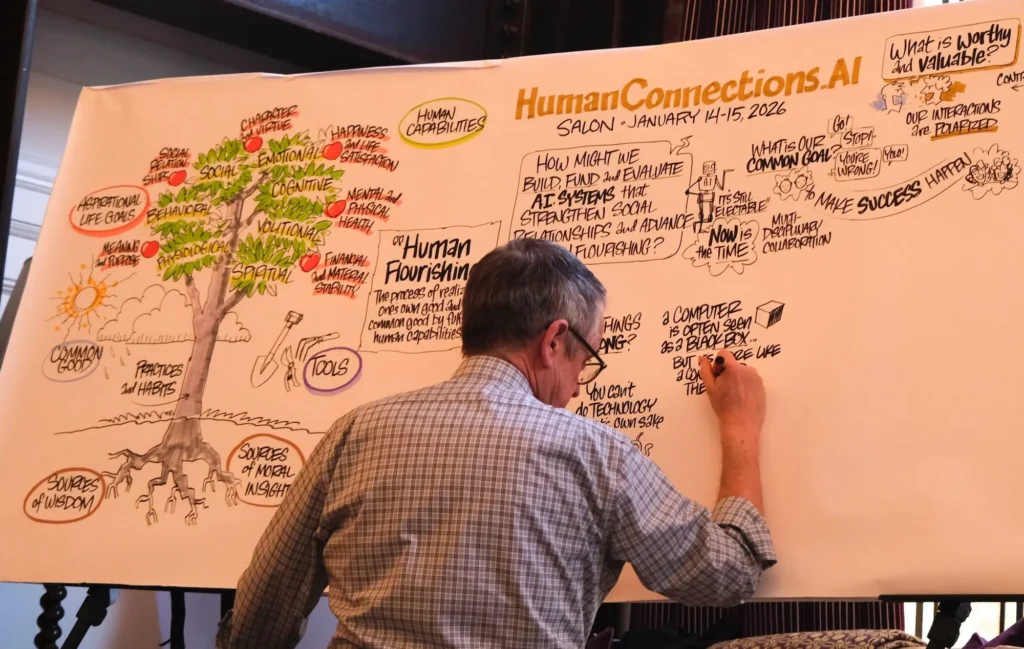 HumanConnections.AI
SALON • JANUARY 14-15, 2026
What is worthy
and valuable?
OUR INTERACTIONS
are POLARIZED
CHARACTER
and VIRTUE
HAPPINESS
and LIFE
SATISFACTION
SOCIAL
RELATION
SHIPS
MENTAL and
PHYSICAL
HEALTH
MEANING
and PURPOSE
FINANCIAL
and MATERIAL
STABILITY
EMOTIONAL
SOCIAL
COGNITIVE
BEHAVIORAL
VOLITIONAL
PHYSIOLOGICAL
SPIRITUAL
ASPIRATIONAL
LIFE GOALS
HUMAN
CAPABILITIES
COMMON
GOOD
PRACTICES
and HABITS
TOOLS
SOURCES
of WISDOM
SOURCES
of MORAL
INSIGHT
Human
Flourishin
The process of realiz
one's own good and
common good by
human capabilities
HOW MIGHT WE
BUILD, FUND and EVALUATE
A.I. SYSTEMS that
STRENGTHEN SOCIAL
RELATIONSHIPS and ADVANCE
FLOURISHING?
NOW is
the TIME
WHAT IS OUR
COMMON GOAL?
Go!
STOP!
YOU'RE
WRONG!
YOU!
to MAKE SUCCESS HAPPEN
MULTI-
DISCIPLINARY
COLLABORATION
YOU can't
do TECHNOLOGY
own sake
a COMPUTER
is OFTEN SEEN
as a BLACK BOX...
BUT LIKE
a
THE